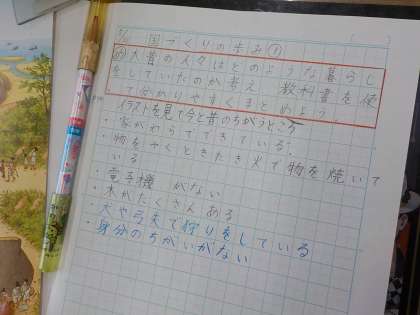 5/10 国づくりの歩み①
め 大昔の人々はどのような暮らし
をしていたのか考え 教科書を使
て分かりやすくまとめよう。
イラストを見て今と昔のちがうところ
・家がわらでできている。
・物をやくときたき火で物を焼いて
いる
・電子機 がない
・木がたくさんある
・犬や弓矢で狩りをしている
・身分のちがいがない